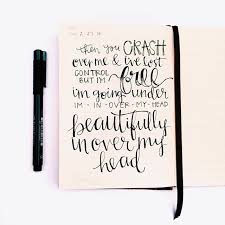 then you CRASH
over me & I've lost
CONTROL BUT I'M
free
i'm going under
IM-IN-OVER-MY-HEAD
beautifully
in over my
head